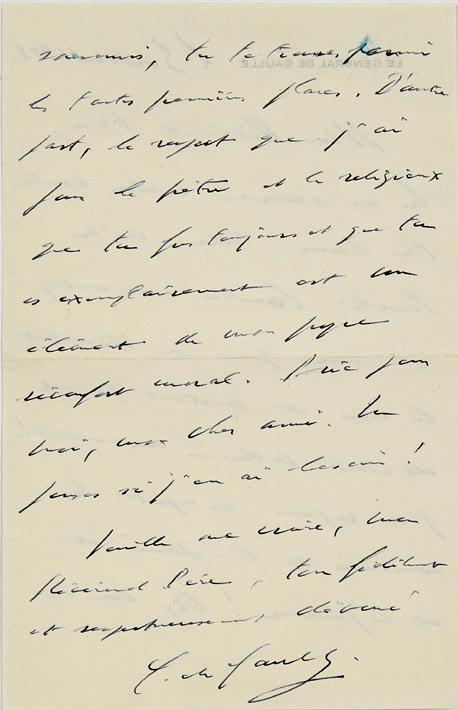 souvenirs, tu te trouves parmi
les toutes premières places. D'autre
part, le respect que j'ai
pour le prêtre et le religieux
que tu fus toujours et que tu
es exemplairement est un
élément de mon propre
réconfort moral. Prie pour
moi, mon cher ami. Tu
penses si j'en ai besoin !
Veuille me croire, mon
Révérend Père, ton fidèlement
et respectueusement dévoué
C. de Gaulle.
LE GÉNÉRAL DE GAULLE